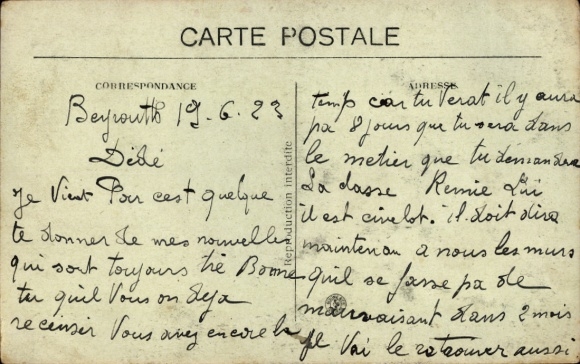 CARTE POSTALE
CORRESPONDANCE
Beyrouth 19-6.23
Dédé
Je vient Par cest quelque
te donner de mes nouvelles
qui sont toujours trè Bonne
tu qu'il Vous on deja
recenser Vous avez encore le
Reproduction interdite
ADRESSE
temps car tu Verat il y aura
pa 8 jours que tu sera dans
le metier que tu demandera
La classe Remie Lui
il est civelot. il doit dire
maintenan a nous les murs
qu'il se fasse pa de
mauvaisant dans 2 mois
Je Vai le retrouver aussi